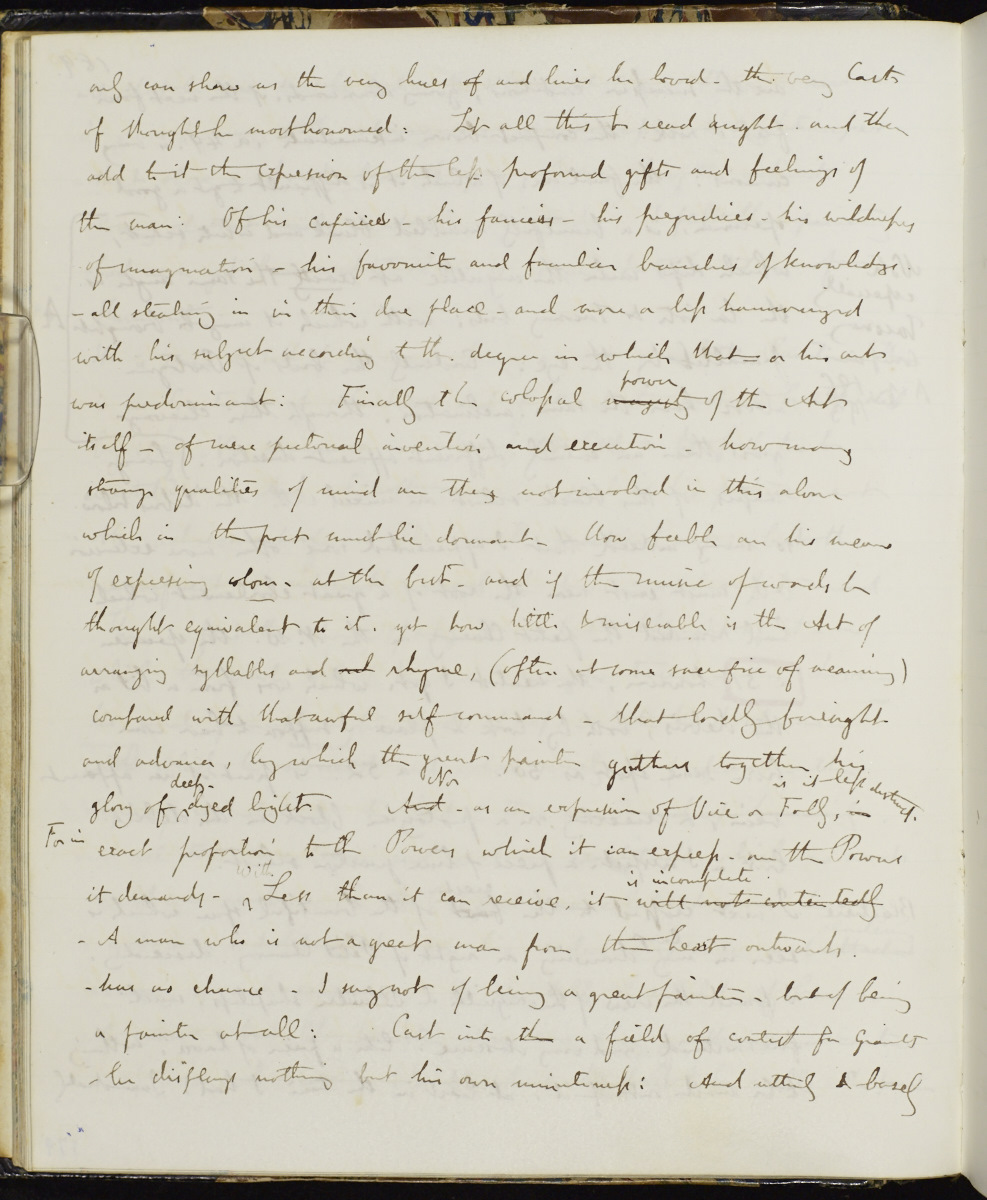 only can show us the very hues of and lines he loved - the very Cast
of thought he most honoured: Let all this be read aright. and then
add to it the expression of the less profound gifts and feelings of
the man: Of his caprices - his fancies - his prejudices - his wildnesses
of imagination - his favourite and familiar branches of knowledge.
- all stealing in in their due place - and more or less harmonized
with his subject according to the degree in which that or his art
was predominant: Finally the colossal majesty power of the Art
itself - of mere pictorial invention and execution - how many
strange qualities of mind are there not involved in this alone
which in the poet must lie dormant - How feeble are his means
of expressing colour - at the best - and if the music of words be
thought equivalent to it. yet how little & miserable is the Art of
arranging syllables and rhyme, (often at some sacrifice of meaning)
compared with that awful self command - that lordly foresight
and advance, by which the great painter gathers together his
glory of deep-dyed light And Nor - as an expression of Vice or Folly, in is it less distinct.
For in exact proportion to the Powers which it can express - are the Powers
it demands - With Less than it can receive, it will not contentedly is incomplete.
- A man who is not a great man from the heart outwards.
- has no chance - I say not of being a great painter - but of being
a painter at all: Cast into the a field of contest for Giants
- he displays nothing but his own minuteness: And utterly & basely